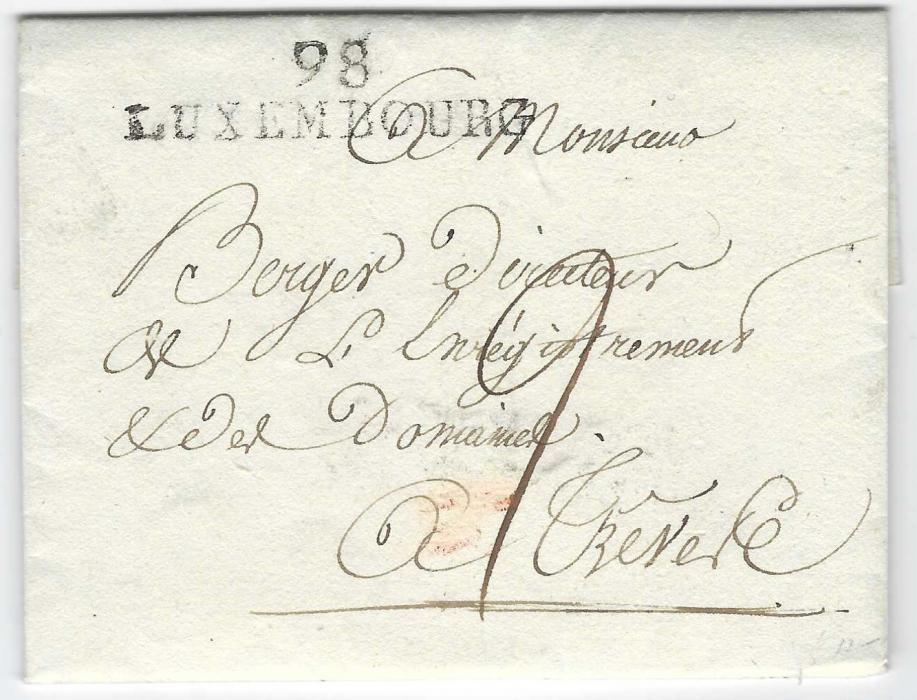 98
LUXEMBOURG
A Monsieur
Berger Directeur
de L'Enrégistrement
& des Domaines.
A Trèves
9